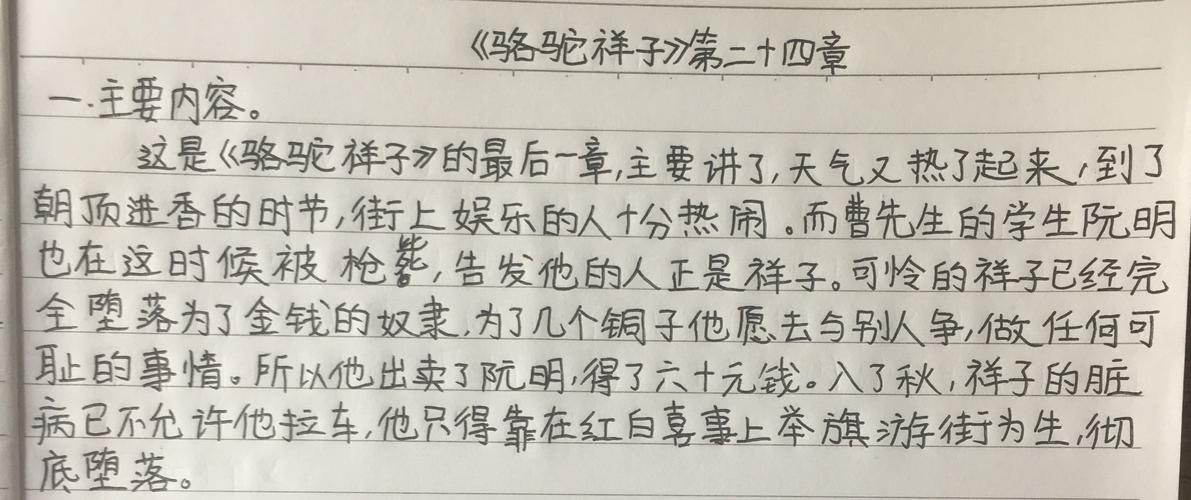 《骆驼祥子》第二十四章
一.主要内容。
这是《骆驼祥子》的最后一章,主要讲了,天气又热了起来,到了
朝顶进香的时节,街上娱乐的人十分热闹。而曹先生的学生阮明
也在这时候被枪毙,告发他的人正是祥子。可怜的祥子已经完
全堕落为了金钱的奴隶,为了几个铜子他愿去与别人争,做任何可
耻的事情。所以他出卖了阮明,得了六十元钱。入了秋,祥子的脏
病已不允许他拉车,他只得靠在红白喜事上举旗游街为生,彻
底堕落。